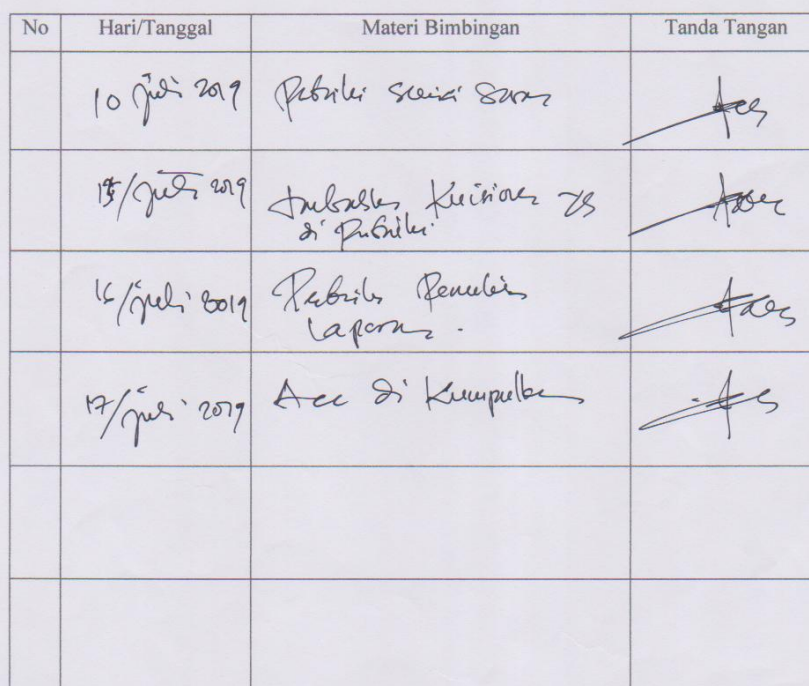 No Hari/Tanggal Materi Bimbingan Tanda Tangan
10 juli 2019 Perbaiki sesuai Saran
15/juli 2019 Kuisioner yg
di perbaiki.
16/juli 2019 Perbaiki Penulisan
Laporan.
17/juli 2019 Acc di Kumpulkan